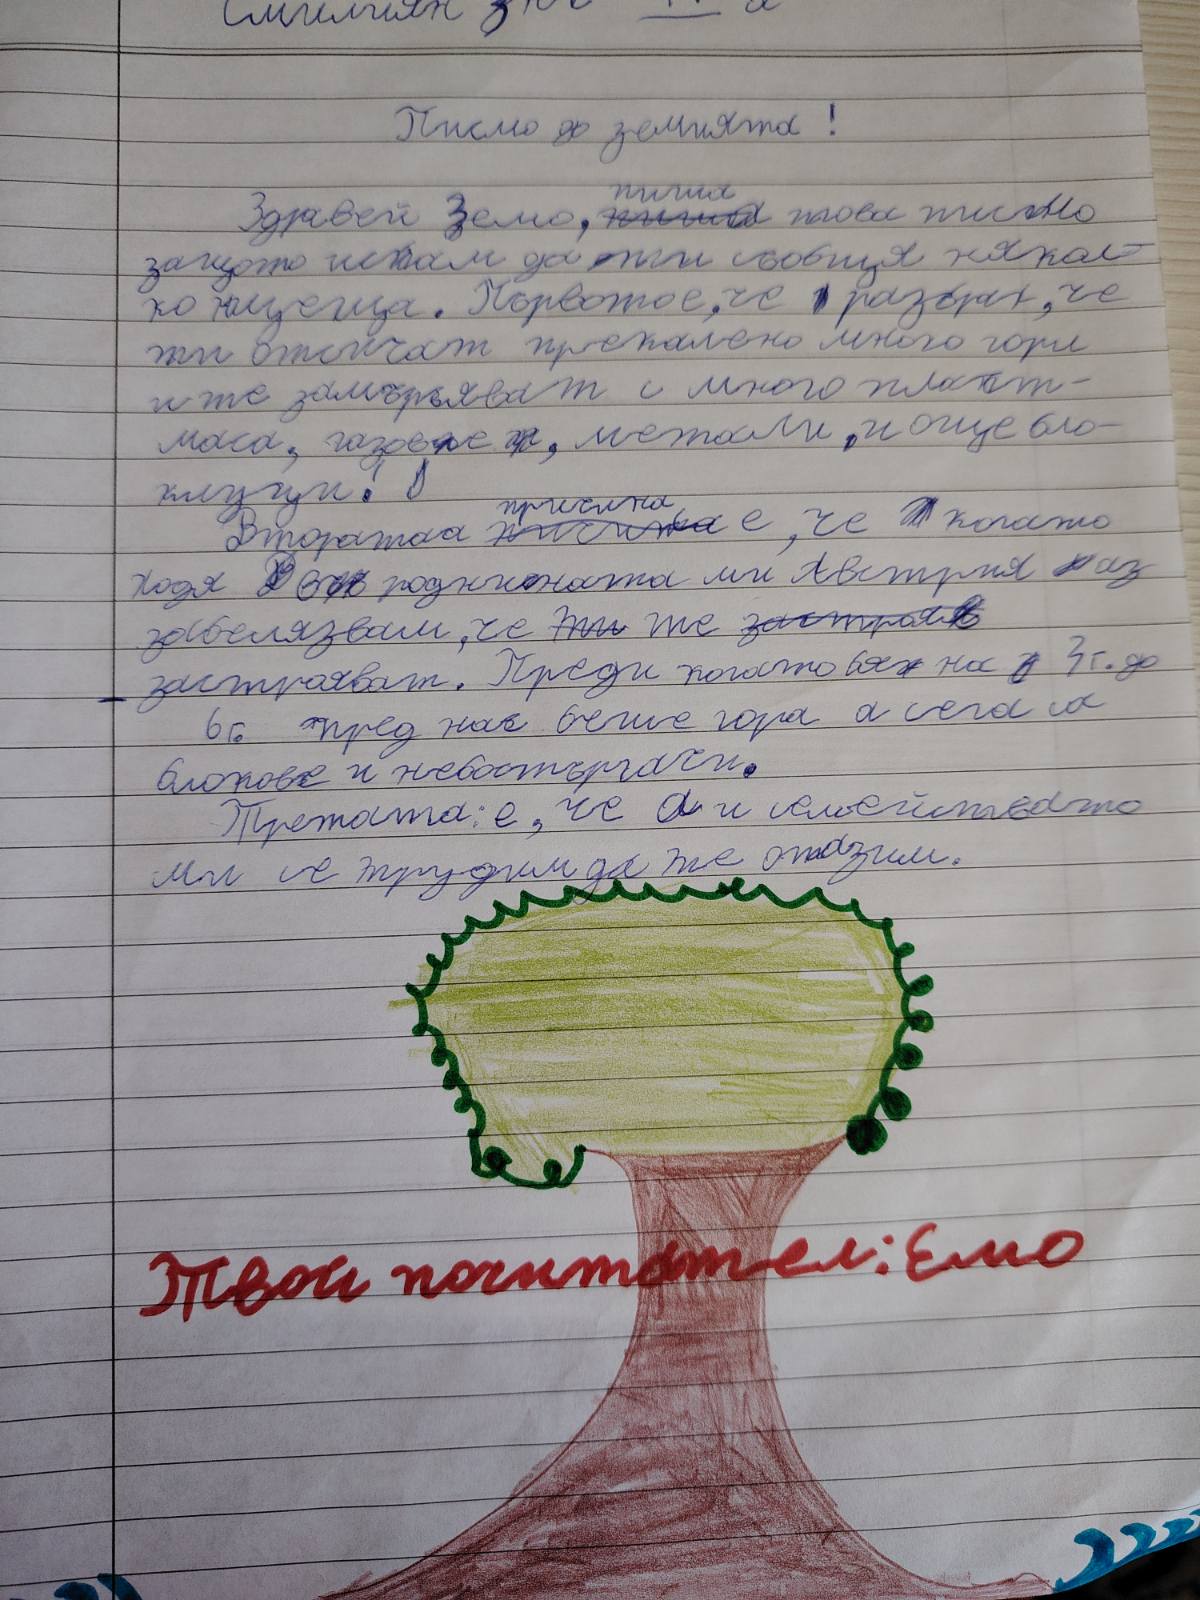 Писмо до земята!
Здравей Земо, пиша това писмо
защото искам да ти съобщя някол-
ко нщенца. Първото е, че разбрах, че
ти отсичат прекалено много гори
и те замърсяват с много пласт-
маса, газове, метали, и още бло-
клуци!
Втората причина е, че когато
ходя в роднината ми Австрия аз
забелязвам, че те
застрояват. Преди когато бях на 3г. до
6г. пред нас беше гора а сега са
блокове и небостъргачи.
Третата: е, че а и семейството
ми се трудим да те опазим.
Твой почитател: Емо